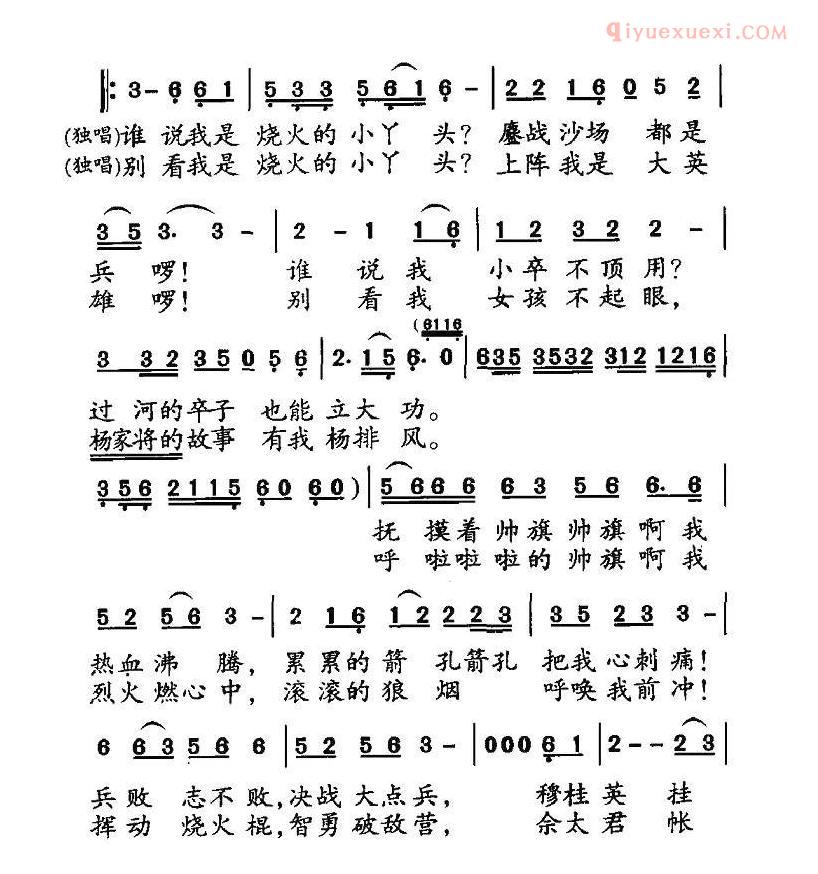 qiyuexuexi.com
3 - 6 6 1 | 5 3 3 5 6 1 6 - | 2 2 1 6 0 5 2 |
(独唱)谁 说我是 烧火的 小丫 头? 鏖战沙场 都是
(独唱)别 看我是 烧火的 小丫 头? 上阵我是 大英
3 5 3· 3 - | 2 - 1 1 6 | 1 2 3 2 2 - |
兵 啰! 谁 说我 小卒不顶用?
雄 啰! 别 看我 女孩不起眼,
(6116
3 32 35 0 5 6 | 2· 15 6· 0 | 635 3532 312 1216 |
过 河的卒子 也能立大 功。
杨家将的故事 有我杨排 风。
356 2115 60 60) | 566 6 63 56 6· 6 |
抚 摸着帅旗帅旗啊我
呼 啦啦啦的帅旗啊我
52 56 3 - | 2 16 12 223 | 35 23 3 - |
热血沸 腾, 累累的箭 孔箭孔 把我心刺痛!
烈火燃心中, 滚滚的狼 烟 呼唤我前冲!
6 63 56 6 | 52 56 3 - | 000 61 | 2 - - 23 |
兵败 志不败,决战大点兵, 穆桂英 挂
挥动 烧火棍,智勇破敌营, 佘太君 帐